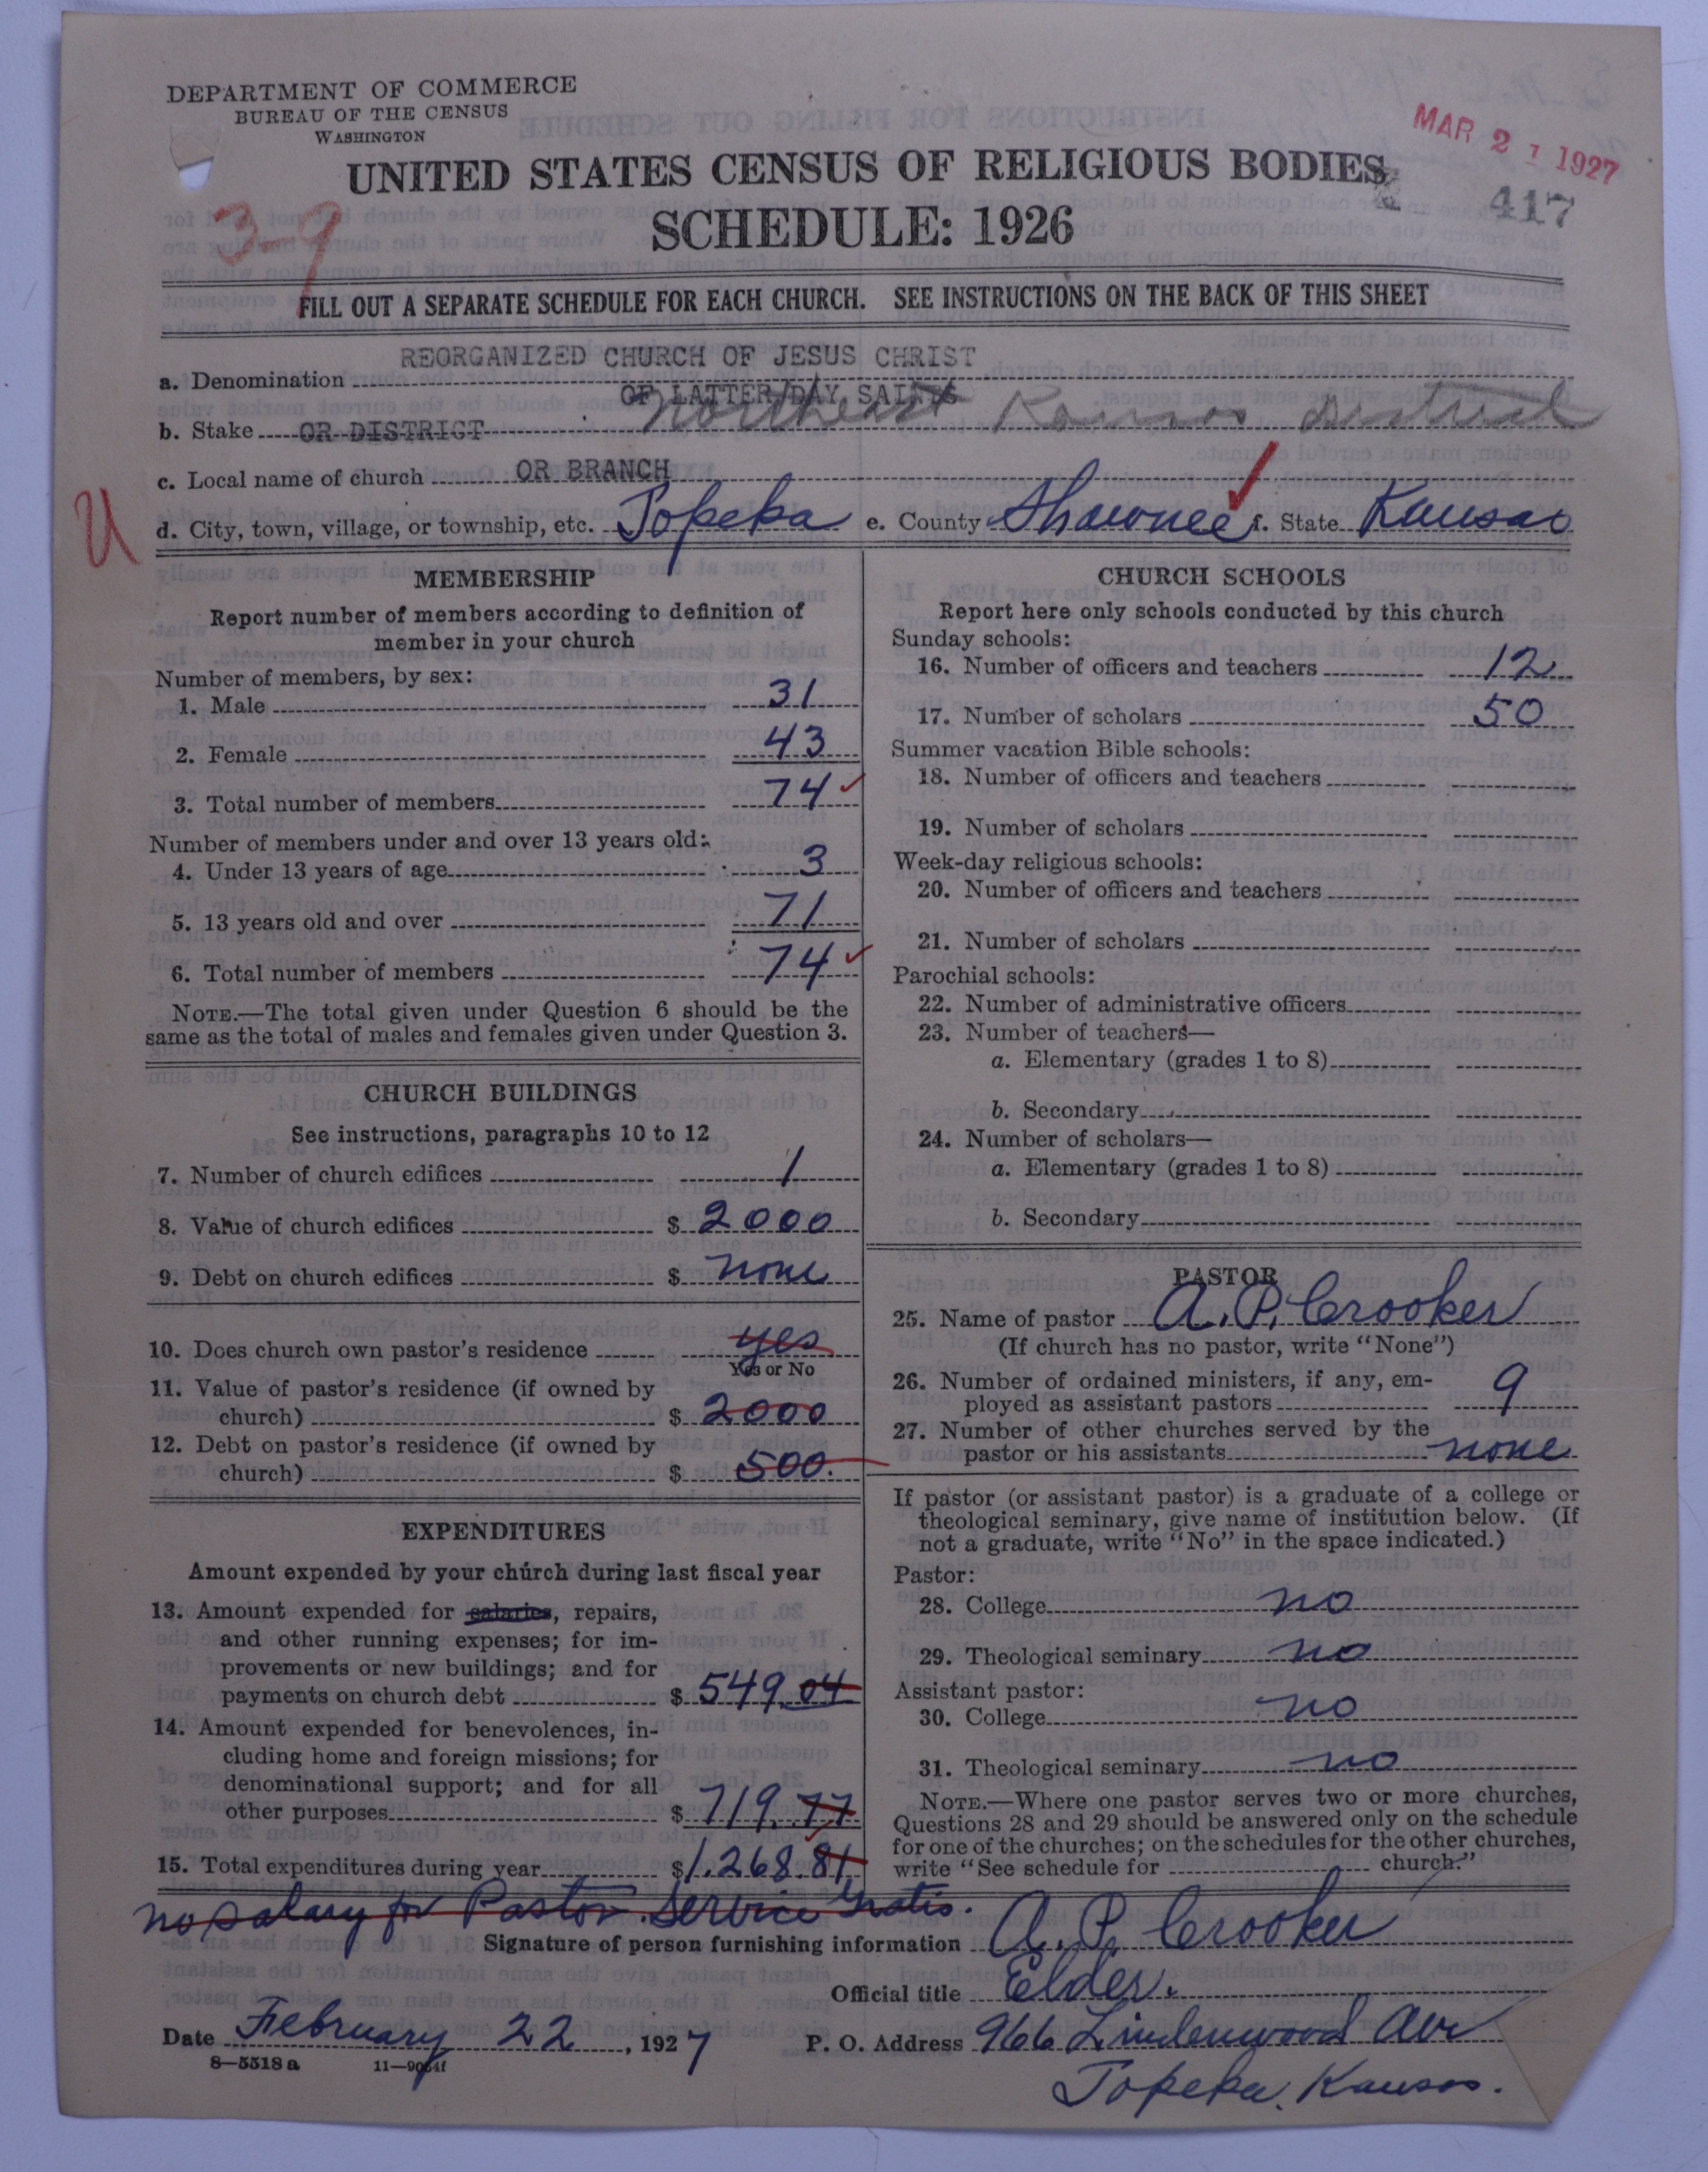 DEPARTMENT OF COMMERCE
BUREAU OF THE CENSUS
WASHINGTON
MAR 21 1927
UNITED STATES CENSUS OF RELIGIOUS BODIES
417
3-9
SCHEDULE: 1926
FILL OUT A SEPARATE SCHEDULE FOR EACH CHURCH. SEE INSTRUCTIONS ON THE BACK OF THIS SHEET
REORGANIZED CHURCH OF JESUS CHRIST
a. Denomination
OF LATTER DAY SAINTS
b. Stake OR DISTRICT Northeast Kansas District
c. Local name of church OR BRANCH
U
d. City, town, village, or township, etc. Topeka e. County Shawnee f. State Kansas
MEMBERSHIP
Report number of members according to definition of
member in your church
Number of members, by sex:
1. Male 31
2. Female 43
3. Total number of members 74
Number of members under and over 13 years old:
4. Under 13 years of age 3
5. 13 years old and over 71
6. Total number of members 74
NOTE.—The total given under Question 6 should be the
same as the total of males and females given under Question 3.
CHURCH BUILDINGS
See instructions, paragraphs 10 to 12
7. Number of church edifices 1
8. Value of church edifices $ 2000
9. Debt on church edifices $ none
10. Does church own pastor's residence yes
Yes or No
11. Value of pastor's residence (if owned by
church) $ 2000
12. Debt on pastor's residence (if owned by
church) $ 500.
EXPENDITURES
Amount expended by your church during last fiscal year
13. Amount expended for salaries, repairs,
and other running expenses; for im-
provements or new buildings; and for
payments on church debt $ 549.04
14. Amount expended for benevolences, in-
cluding home and foreign missions; for
denominational support; and for all
other purposes $ 719.77
15. Total expenditures during year $ 1.268.81
no salary for Pastor. Service Gratis.
CHURCH SCHOOLS
Report here only schools conducted by this church
Sunday schools:
16. Number of officers and teachers 12
17. Number of scholars 50
Summer vacation Bible schools:
18. Number of officers and teachers
19. Number of scholars
Week-day religious schools:
20. Number of officers and teachers
21. Number of scholars
Parochial schools:
22. Number of administrative officers
23. Number of teachers—
a. Elementary (grades 1 to 8)
b. Secondary
24. Number of scholars—
a. Elementary (grades 1 to 8)
b. Secondary
PASTOR
25. Name of pastor A. P. Crooker
(If church has no pastor, write "None")
26. Number of ordained ministers, if any, em-
ployed as assistant pastors 9
27. Number of other churches served by the
pastor or his assistants none
If pastor (or assistant pastor) is a graduate of a college or
theological seminary, give name of institution below. (If
not a graduate, write "No" in the space indicated.)
Pastor:
28. College no
29. Theological seminary no
Assistant pastor:
30. College no
31. Theological seminary no
NOTE.—Where one pastor serves two or more churches,
Questions 28 and 29 should be answered only on the schedule
for one of the churches; on the schedules for the other churches,
write "See schedule for church."
Signature of person furnishing information A. P. Crooker
Official title Elder.
Date February 22, 1927 P. O. Address 966 Lindenwood Ave
8—5518 a 11—9064f
Topeka, Kansas.